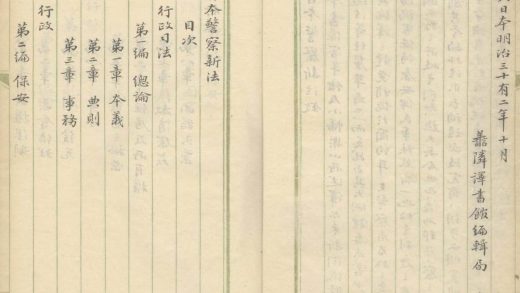 日本明治三十有二年十月
善隣譯書館編輯局
本警察新法
目次
行政司法
第一編 總論
第一章 本義
第二章 典則
第三章 事務
行政
第二編 保安